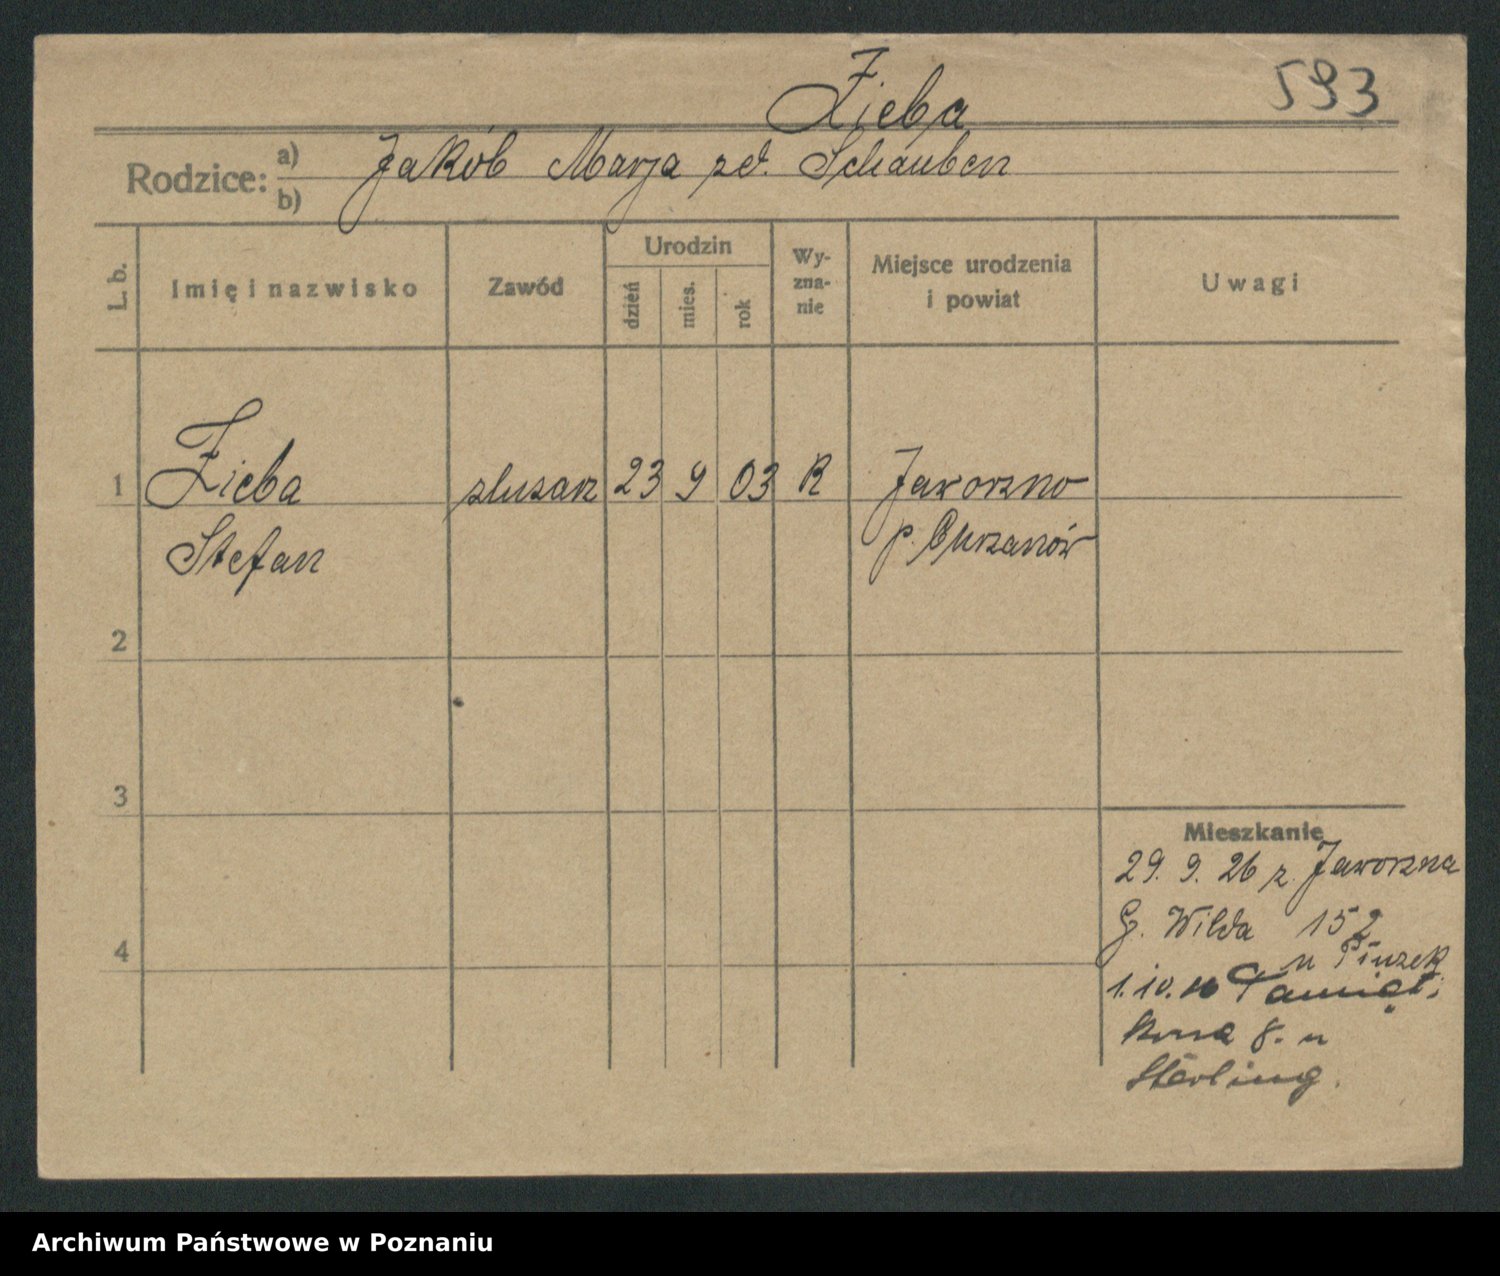 Zieba
593
Rodzice: a) b)
Jakób Marja zd. Schauben
L. b.
Imię i nazwisko
Zawód
Urodzin
dzień
mies.
rok
Wy-
zna-
nie
Miejsce urodzenia
i powiat
Uwagi
1 Zieba slusarz 23 9 03 R Jaworzno
Stefan p. Chrzanów
2
3
4
Mieszkanie
29. 9. 26 z. Jaworzna
G. Wilda 152
u
1. 10.
8. u
Sterling.
Archiwum Państwowe w Poznaniu